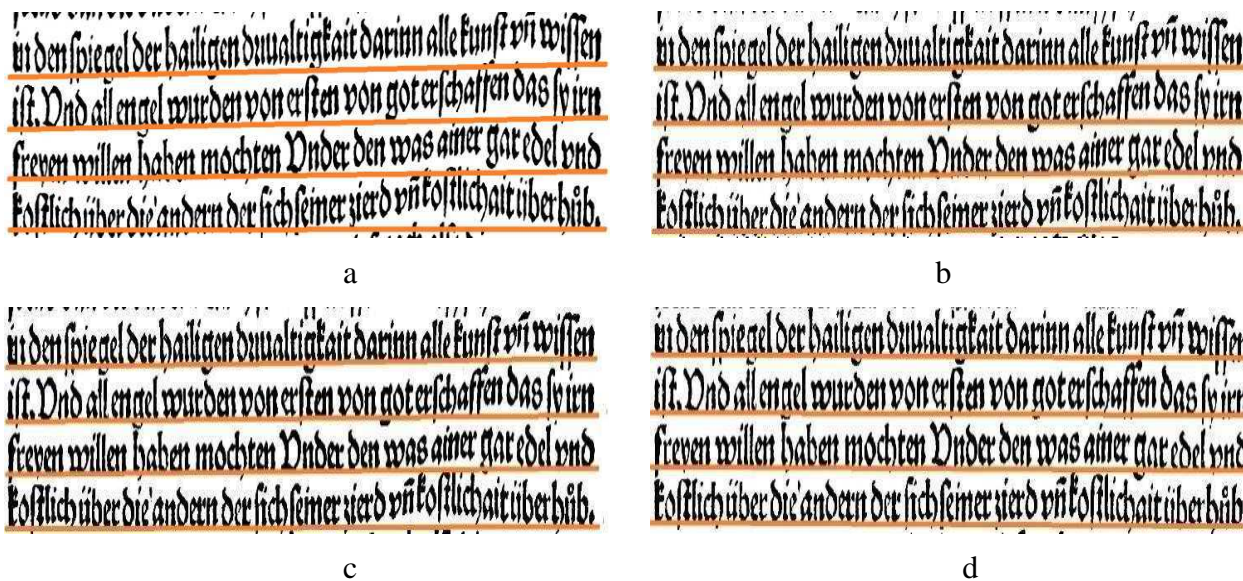 in den spiegel der hailigen driualtigkait darinn alle kunst vñ wissen
ist. Vnd all engel wurden von ersten von got erschaffen das sy irn
freyen willen haben mochten Vnder den was ainer gar edel vnd
kostlich über die andern der sich seiner zierd vñ kostlichait überhůb.
a
in den spiegel der hailigen driualtigkait darinn alle kunst vñ wissen
ist. Vnd all engel wurden von ersten von got erschaffen das sy irn
freyen willen haben mochten Vnder den was ainer gar edel vnd
kostlich über die andern der sich seiner zierd vñ kostlichait überhůb.
b
in den spiegel der hailigen driualtigkait darinn alle kunst vñ wissen
ist. Vnd all engel wurden von ersten von got erschaffen das sy irn
freyen willen haben mochten Vnder den was ainer gar edel vnd
kostlich über die andern der sich seiner zierd vñ kostlichait überhůb.
c
in den spiegel der hailigen driualtigkait darinn alle kunst vñ wissen
ist. Vnd all engel wurden von ersten von got erschaffen das sy irn
freyen willen haben mochten Vnder den was ainer gar edel vnd
kostlich über die andern der sich seiner zierd vñ kostlichait überhůb
d